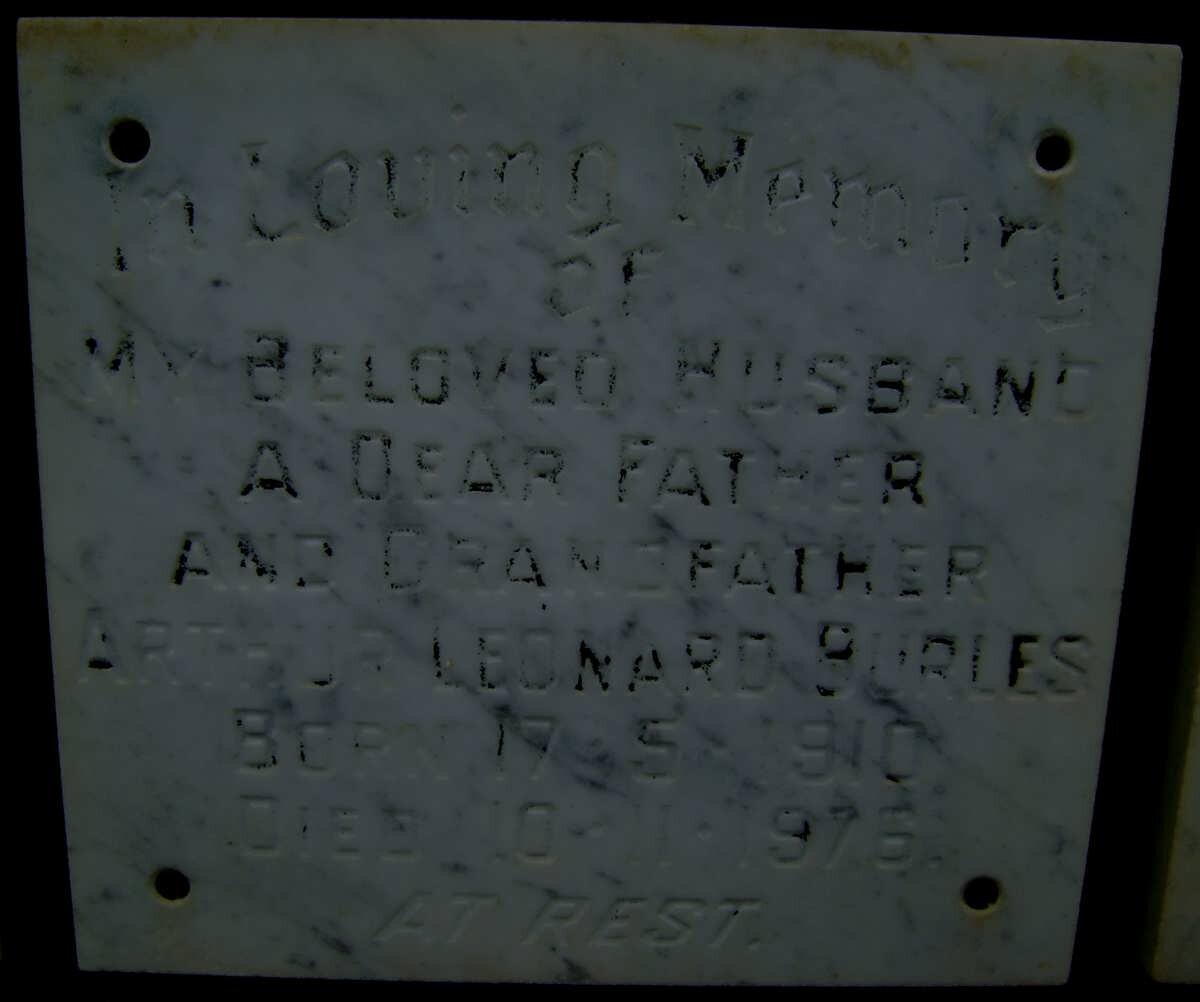 In Loving Memory
OF
MY BELOVED HUSBAND
A DEAR FATHER
AND GRANDFATHER
ARTHUR LEONARD BURLES
BORN 17·5·1910
DIED 10·11·1976.
AT REST.